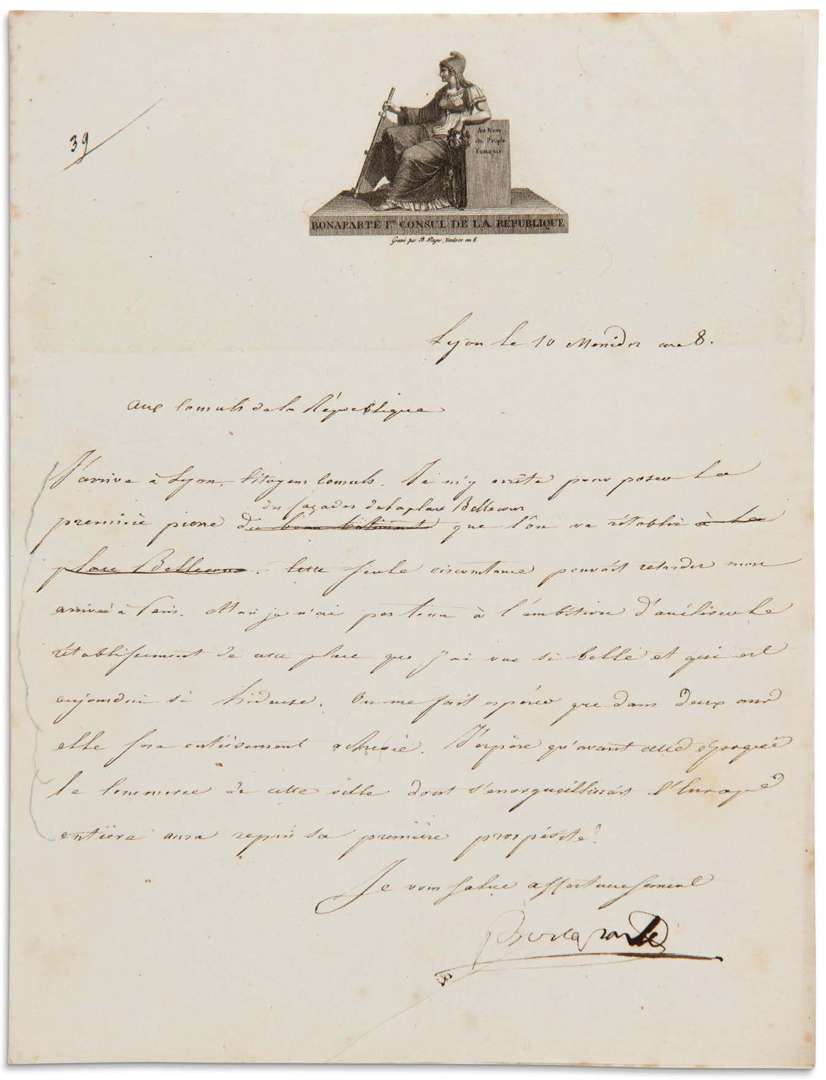 39
Au Nom
du Peuple
Français
BONAPARTE Ier CONSUL DE LA REPUBLIQUE
Gravé par B. Roger,
Lyon le 10 Messidor an 8.
aux Consuls de la République
J'arrive à Lyon, Citoyens Consuls. Je m'y arrête pour poser la
des façades de la place Bellecour
première pierre du beau bâtiment que l'on va rétablir à la
place Bellecour. Cette seule circonstance pouvait retarder mon
arrivée à Paris. Mais je n'ai pas tenu à l'ambition d'accélérer le
rétablissement de cette place que j'ai vue si belle et qui est
aujourdui si hideuse. On me fait espérer que dans deux ans
elle sera entièrement achevée. J'espère qu'avant cette époque
le commerce de cette ville dont s'enorgueillissait l'Europe
entière aura repris sa première prospérité.
Je vous salue affectueusement
Bonaparte